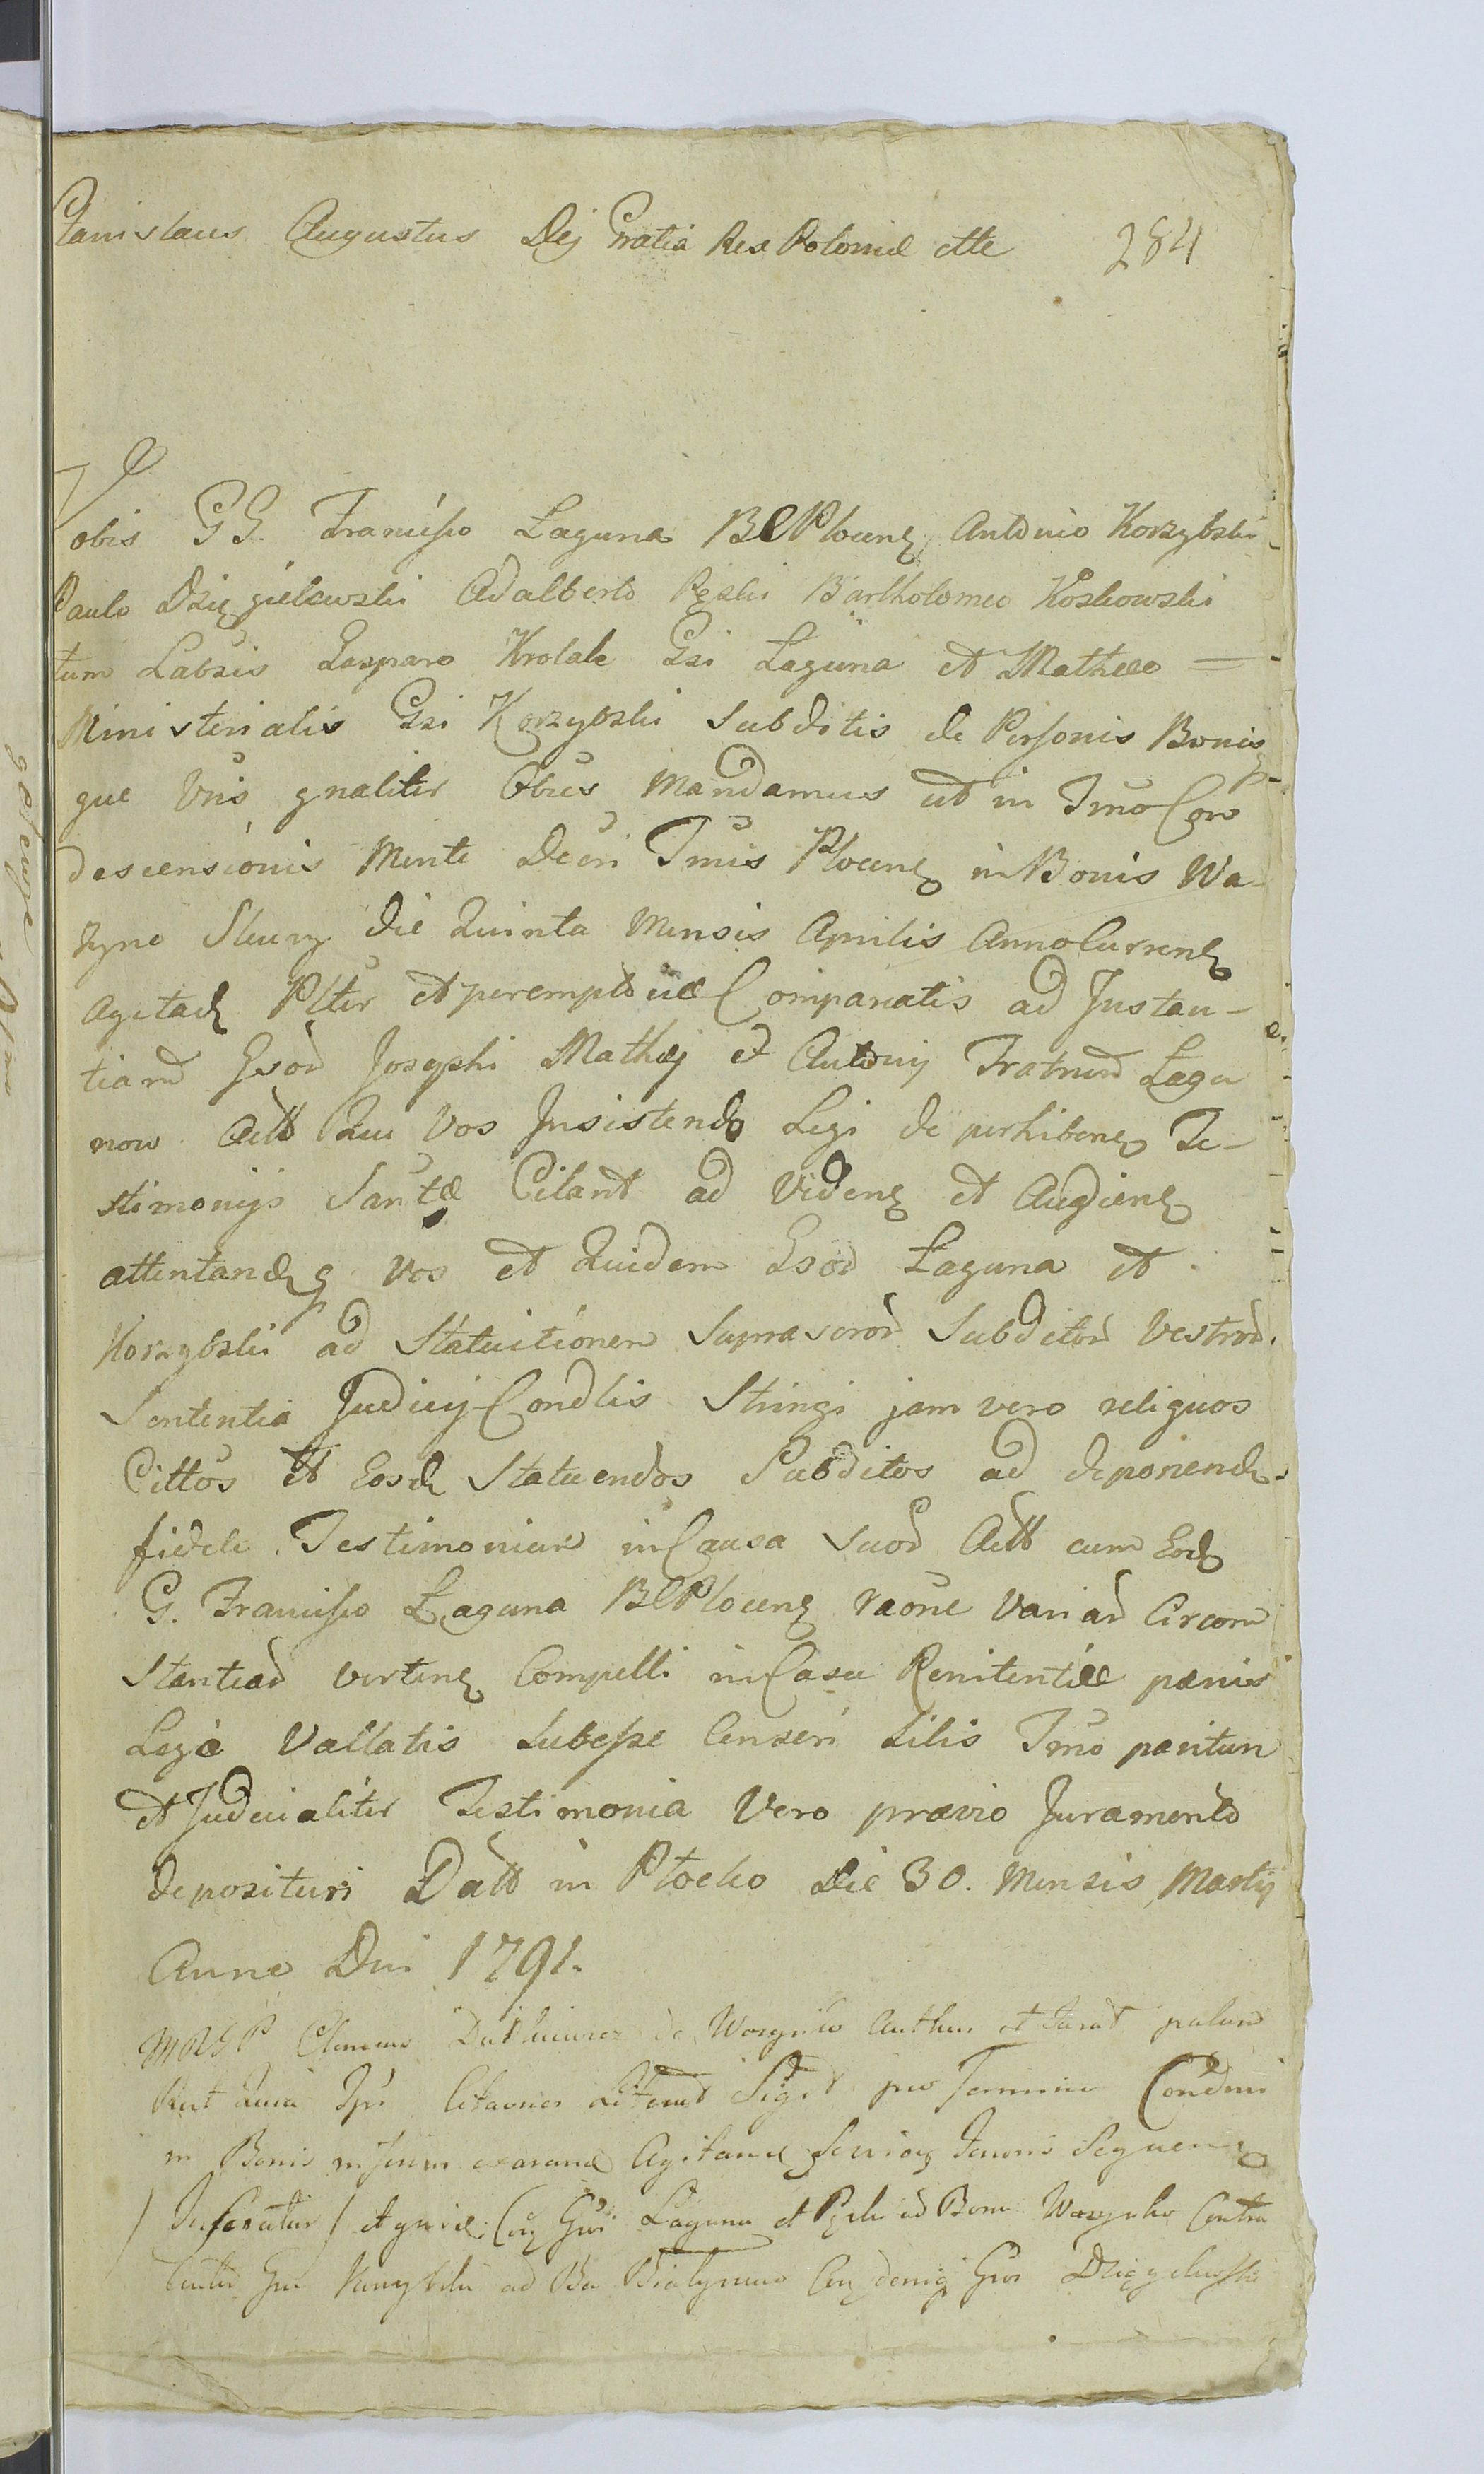 Stanislaus Augustus Dej Gratia Rex Poloniæ ette 284
Vobis GG. Francisco Łaguna BCPłocenſ Antonio Korzybski
Paulo Dzięgielewski Adalberto Pęski Bartholomeo Koskowski
tum Labsis Gasparo Krolak Gsi Łaguna et Mathæo
Ministerialis Gsi Korzybski Subditis de Personis Bonisq
que Vris gnaliter Obus Mandamus ut in Tmo Con
descensionis Mente Decri Tmis Płocenſ in Bonis Wa-
zyno Skury Die Quinta Mensis Aprilis Anno Currenſ
Agitand Pltr et peremptoriæ Compareatis ad Instan-
tiam Gsod Josephi Mathej et Antonij Fratrum Łagu
now Actt Qui Vos Insistendo Legi de perhibenſ Te-
stimonijs Santæ Citant ad Videnſ et Audienſ
attentandq vos et Quidem Gsod Łaguna et
Korzybski ad Statuitionem Suprascrod Subditod Vestrod.
Sententia Judicij Condlis Stringi jam vero reliquos
Cittos et Eosd Statuendos Subditos ad deponend
fidele Testimonium in Causa Suod Actt cum Eod
G. Francisco Łaguna BCPłocenſ raone Variad Circom
Stantiad vertenſ Compelli in Casu Renitentiæ pænis
Lege Vallatis Subesse Censeri Silis Tmo parituri
et Judicialiter Testimonia Vero prævio Juramento
deposituri Datt in Płocko Die 30. Mensis Martij
Anno Dni 1791.
MRGP Clemens de Wozyniko Authen et Jurat palam
Rect Quia Literad Siget pro Termino Condni
in Bonis Agitand Tenoris Sequenſ
/ Inseratur / et quid Coq Gsi Łaguna et Pęski ad Bona Wazynko Contra
ad Ba Białymino Dzięgielewski